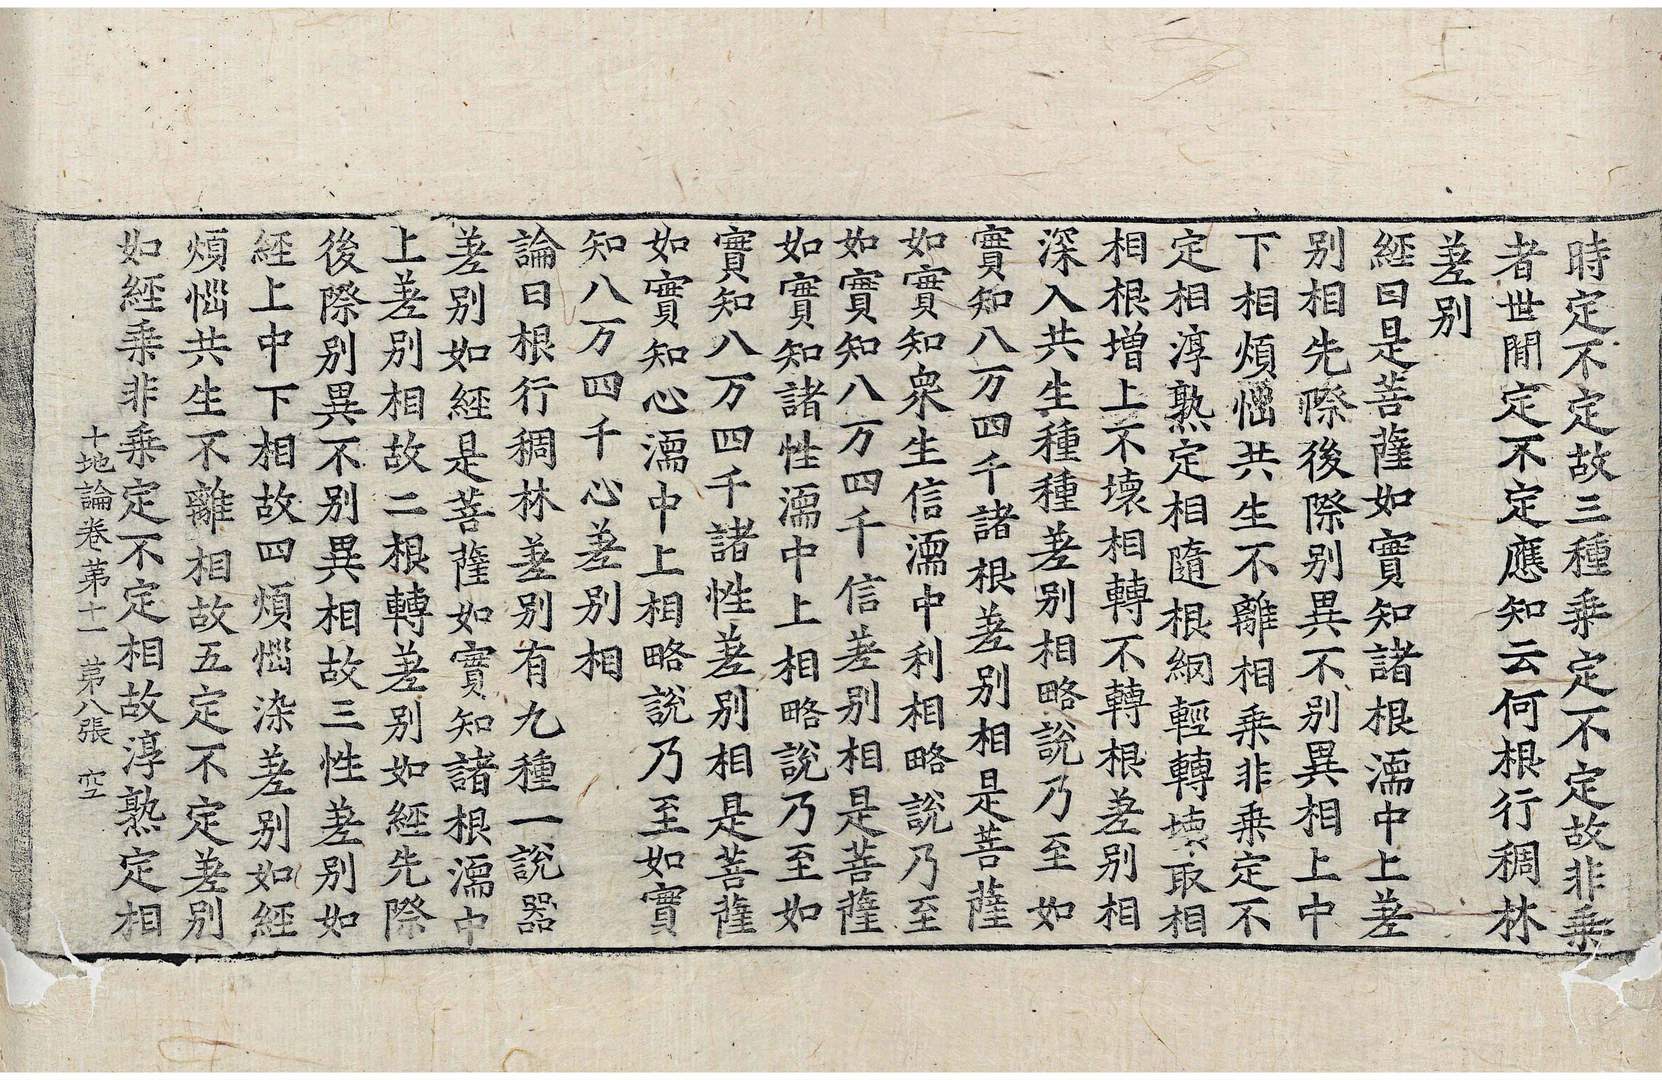 時定不定故三種乘定不定故非乘
者世閒定不定應知云何根行稠林
差別
經曰是菩薩如實知諸根濡中上差
別相先際後際別異不別異相上中
下相煩惱共生不離相乘非乘定不
定相淳熟定相隨根網輕轉壞取相
相根增上不壞相轉不轉根差別相
深入共生種種差別相略說乃至如
實知八万四千諸根差別相是菩薩
如實知衆生信濡中利相略說乃至
如實知八万四千信差別相是菩薩
如實知諸性濡中上相略說乃至如
實知八万四千諸性差別相是菩薩
如實知心濡中上相略說乃至如實
知八万四千心差別相
論曰根行稠林差別有九種一說器
差別如經是菩薩如實知諸根濡中
上差別相故二根轉差別如經先際
後際別異不別異相故三性差別如
經上中下相故四煩惱染差別如經
煩惱共生不離相故五定不定差別
如經乘非乘定不定相故淳熟定相
十地論卷第十一 第八張 空